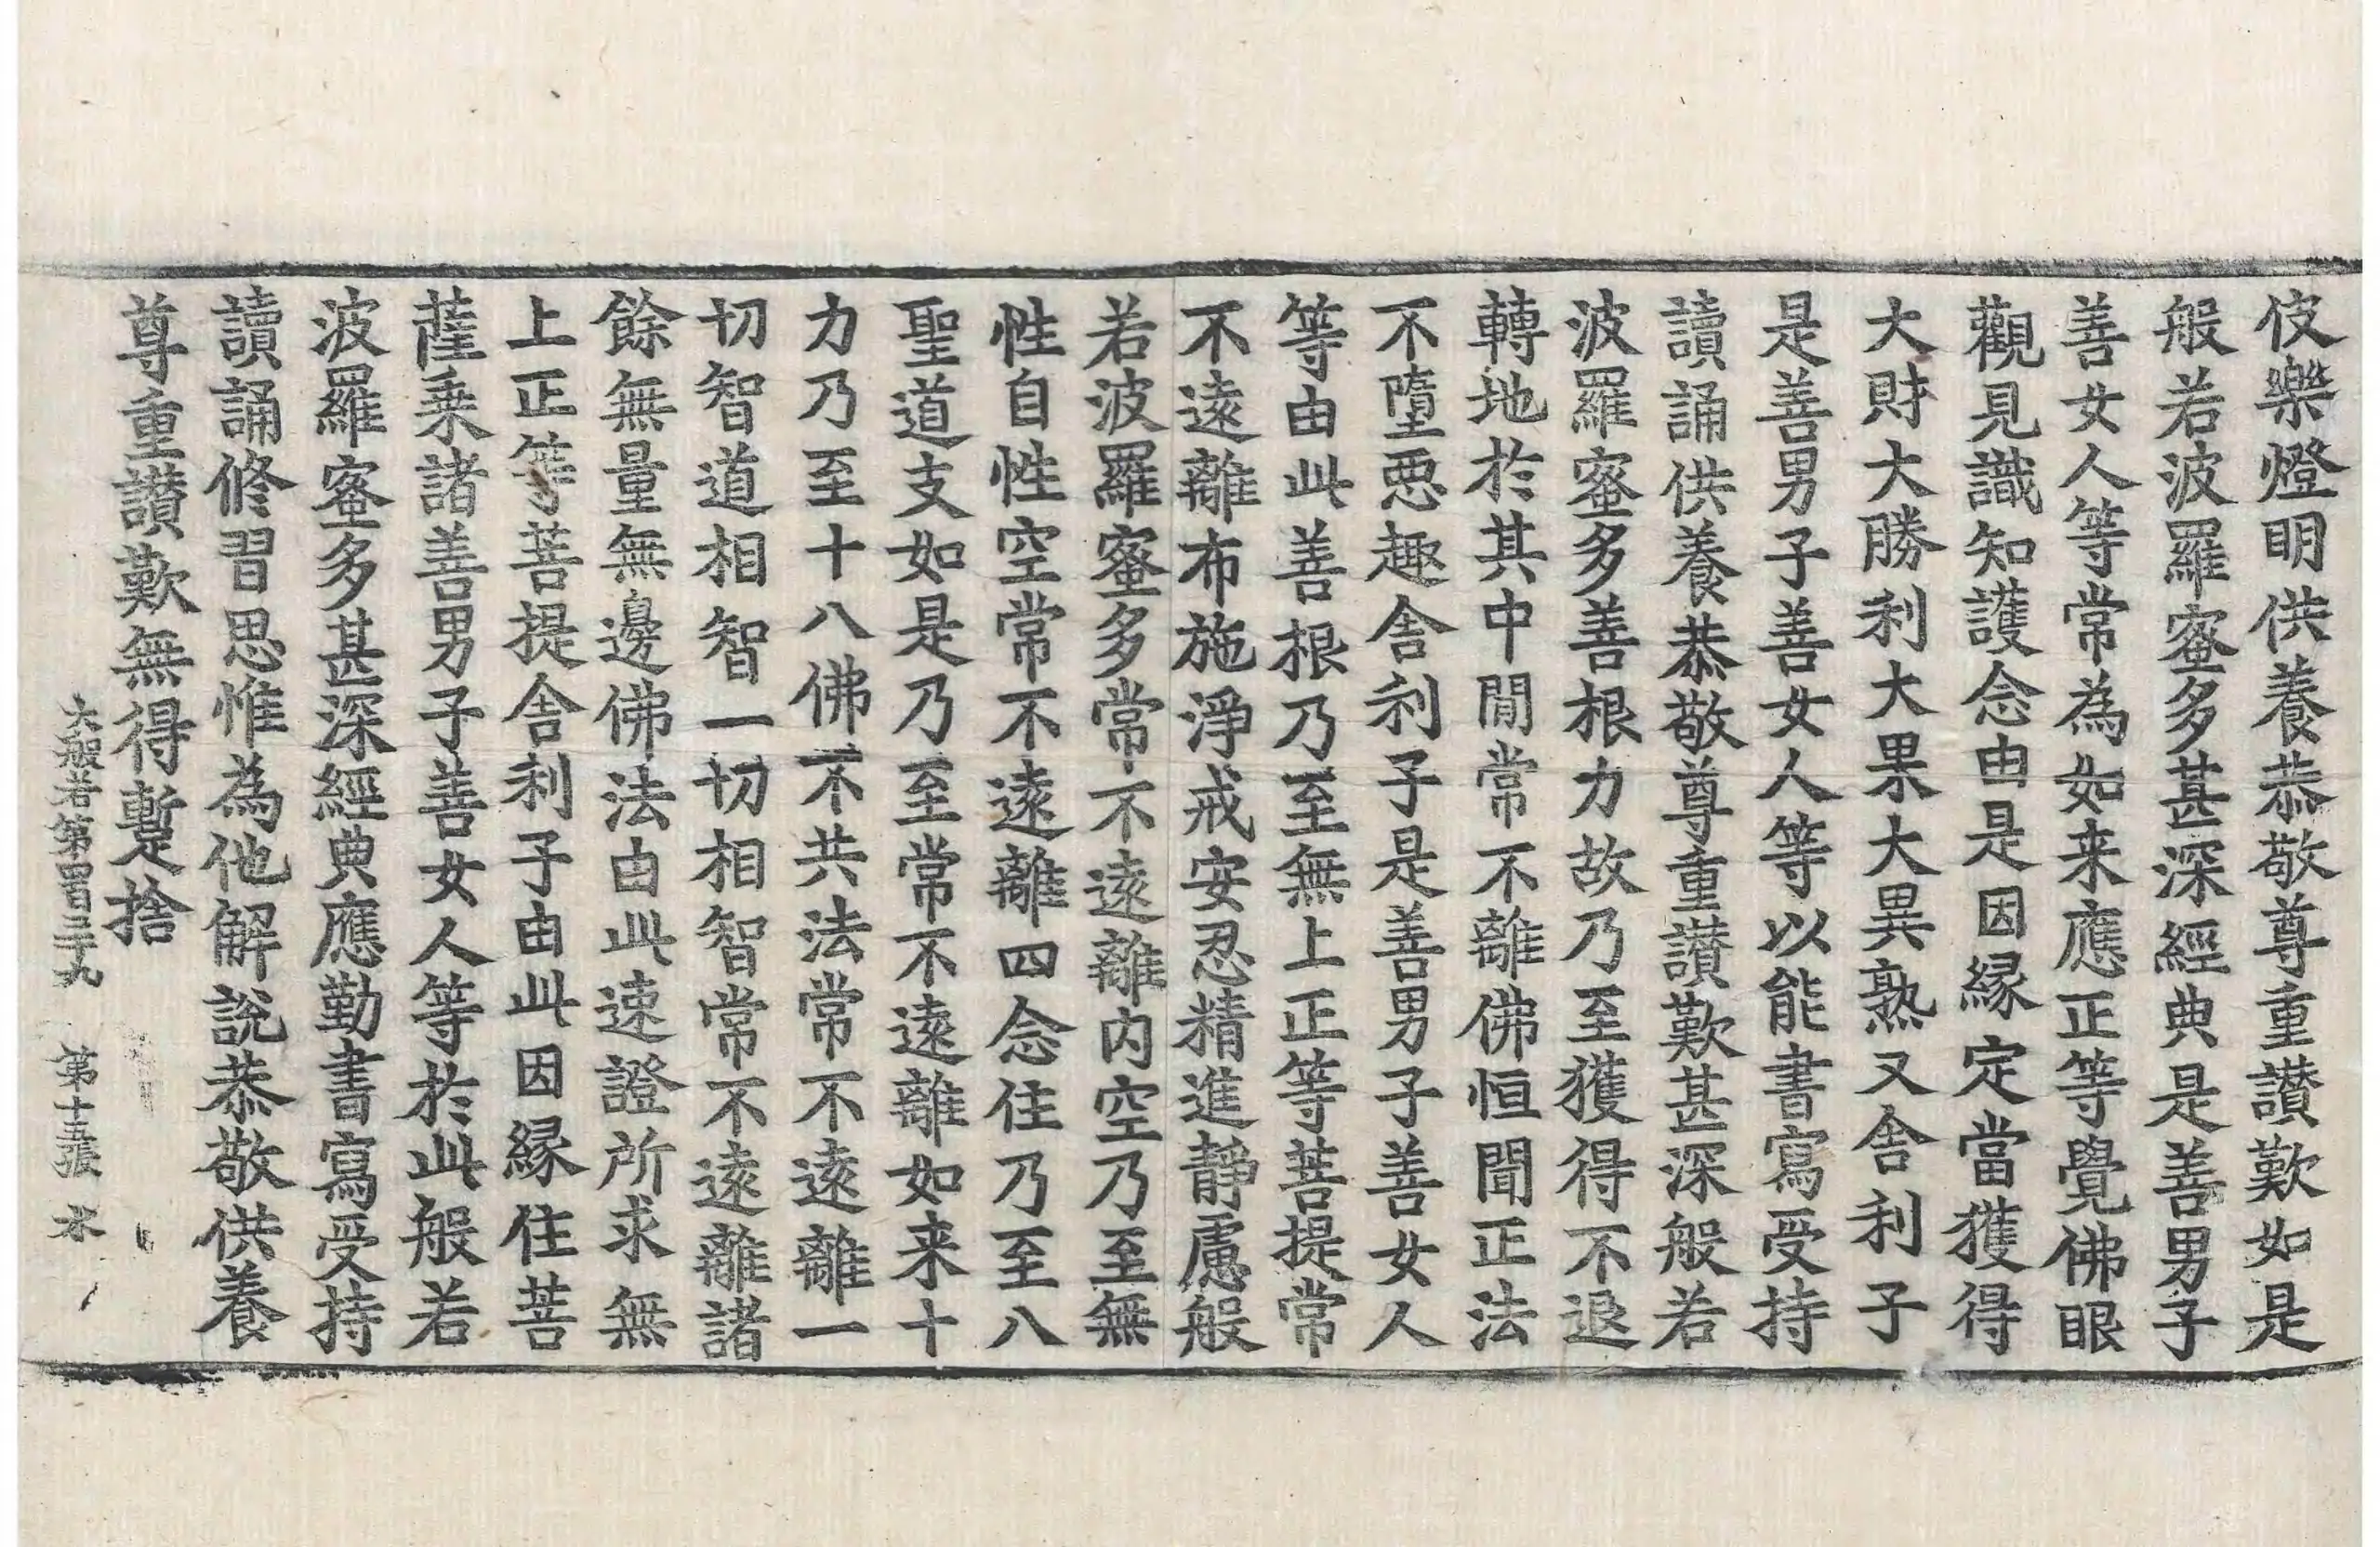 伎樂燈明供養恭敬尊重讃歎如是
般若波羅蜜多甚深經典是善男子
善女人等常為如来應正等覺佛眼
觀見識知護念由是因縁定當獲得
大財大勝利大果大異熟又舍利子
是善男子善女人等以能書寫受持
讀誦供養恭敬尊重讃歎甚深般若
波羅蜜多善根力故乃至獲得不退
轉地於其中閒常不離佛恒聞正法
不墮惡趣舍利子是善男子善女人
等由此善根乃至無上正等菩提常
不遠離布施淨戒安忍精進靜慮般
若波羅蜜多常不遠離内空乃至無
性自性空常不遠離四念住乃至八
聖道支如是乃至常不遠離如来十
力乃至十八佛不共法常不遠離一
切智道相智一切相智常不遠離諸
餘無量無邊佛法由此速證所求無
上正等菩提舍利子由此因縁住菩
薩乗諸善男子善女人等於此般若
波羅蜜多甚深經典應勤書寫受持
讀誦修習思惟為他解說恭敬供養
尊重讃歎無得蹔捨
大般若第四百三十九 第十五張 水